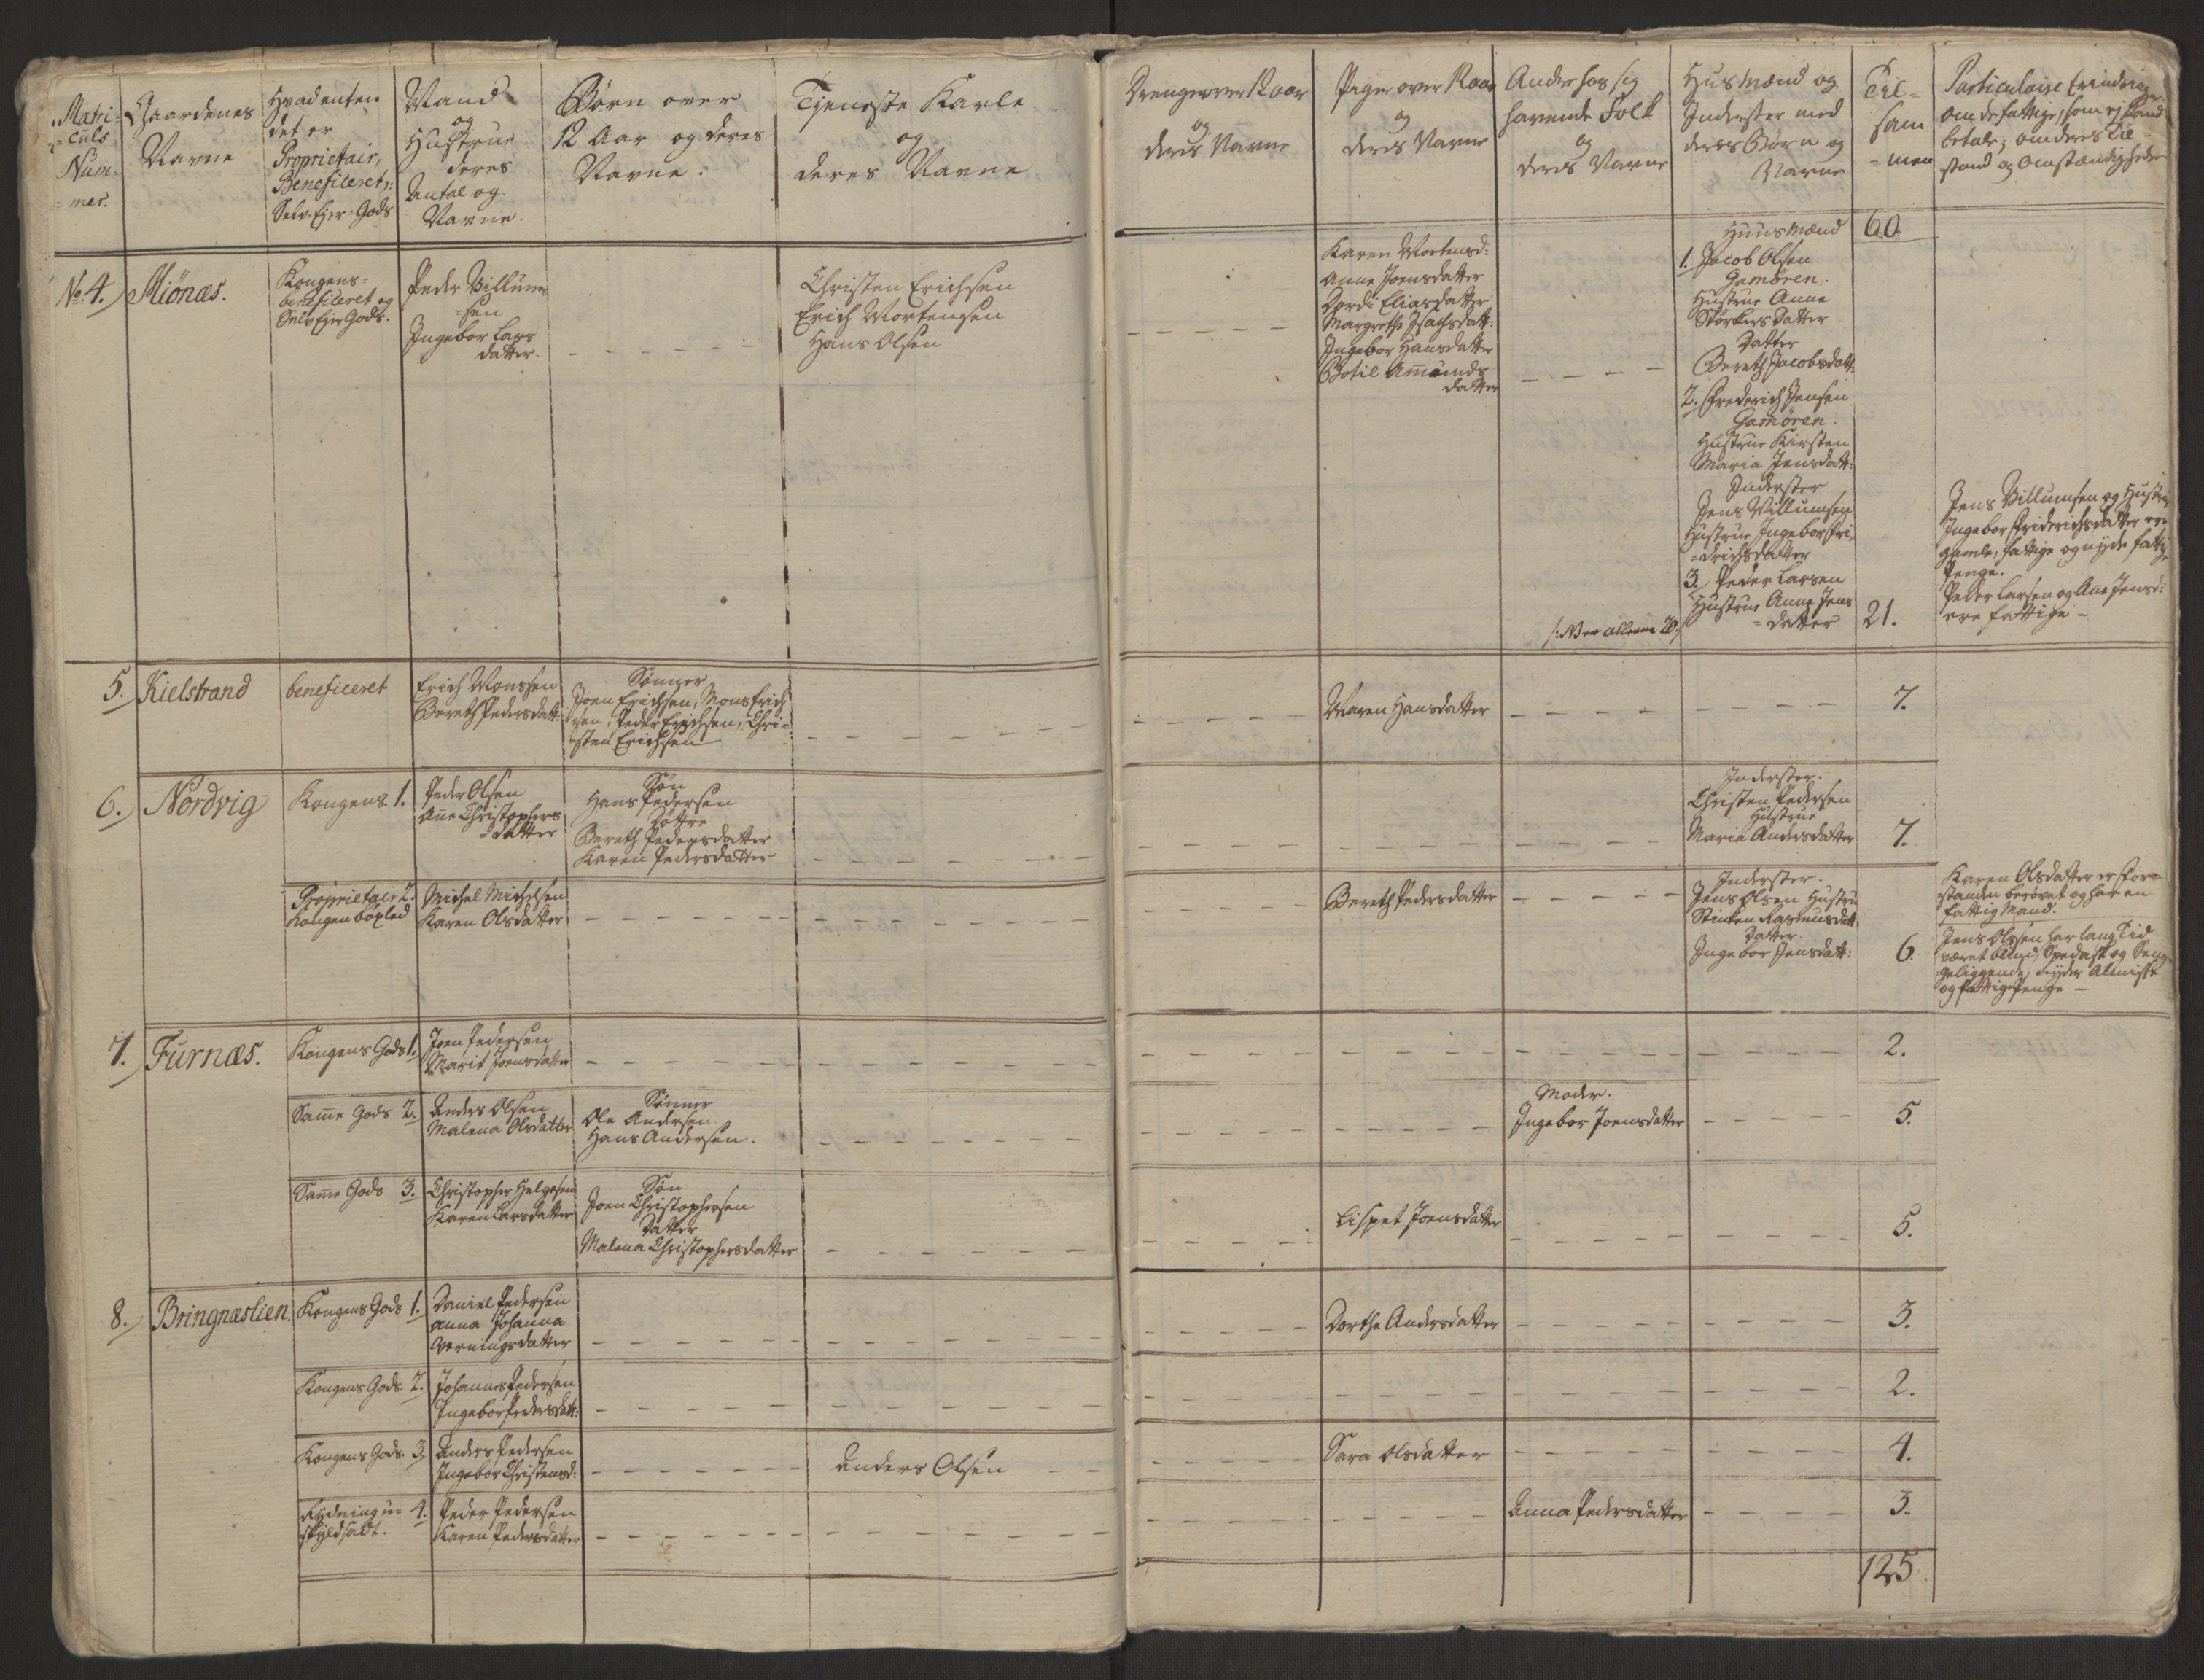 Matri-
-culs
Num-
-mer.
Gaardenes
Navne
Hvad enten
det er
Proprietair,
Beneficeret,
Selv-Ejer-Gods
Mand
og
Hustrue
deres
Antal og
Navne.
Børn over
12 Aar og deres
Navne.
Tjeneste Karle
og
deres Navne
Drenge over 12 aar
og
deres Navne
Piger over 12 aar
og
deres Navne
Andre hos sig
havende Folk
og
deres Navne
Huusmænd og
Inderster med
deres Børn og
Navne
Til-
sam
-men
Particulaire Erindring
om de fattige, som ej kand
betale; om deres Til-
stand og Omstændigheder
No. 4.
Miønæs.
Kongens-
beneficeret og
Selv Ejer Gods.
Peder Villum-
-sen
Ingebor Lars
datter.
Christen Erichsen
Erich Mortensen
Hans Olsen
Karen Mortensd:
Anne Joensdatter
Dordi Eliasdatter
Margrethe Isachsdatt:
Ingebor Hansdatter
Botil Amunds
datter
Huusmænd
60
1. Jacob Olsen
Gamøren.
Hustrue Anne
Størkersdatter
Datter
Bereth Jacobsdatt:
2. Frederich Jensen
Gamøren.
Hustrue Kirsten
Maria Jensdatt:
Inderster
Jens Villumsen
Hustrue Ingebor Fri-
-derichsdatter
3. Peder Larsen
Hustrue Anne Jens
-datter
/: N er alleene 20
21.
Jens Villumsen og Hustrue
Ingebor Friderichsdatter ere
gamle, fattige og nyde fattig
Penge.
Peder Larsen og Ane Jensd:
ere fattige -
5.
Kielstrand
beneficeret
Erich Monssen
Bereth Pedersdatt:
Sønner
Joen Erichsen, Mons Erich
-sen, Peder Erichsen, Chri-
-sten Erichsen
Maren Hansdatter
7.
6.
Nordvig
Kongens. 1.
Peder Olsen
Ane Christophers
-datter
Søn
Hans Pedersen
Døttre
Bereth Pedersdatter
Karen Pedersdatter
Inderster.
Christen Pedersen
Hustrue
Maria Andersdatter
7.
Proprietair 2.
Kongen böxled
Michel Michelsen
Karen Olsdatter
Bereth Pedersdatter
Inderster.
Jens Olsen Hustru
Stinken Rasmusdatt.
Datter.
Ingebor Jensdatt:
6.
Karen Olsdatter er for-
standen berøvet og har en
fattig Mand.
Jens Olsen har lang Tid
været blind, Spedalsk og Sen-
geliggende, nyder Almisse
og fattig Penge -
7.
Furnæs.
Kongens Gods 1.
Joen Pedersen
Marit Joensdatter
2.
Same Gods 2.
Anders Olsen
Malena Olsdatter
Sønner
Ole Andersen
Hans Andersen.
Moder.
Ingebor Joensdatter
5.
Same Gods 3.
Christopher Helgesen
Karen Larsdatter
Søn
Joen Christophersen
Datter
Malena Christophersdatter
Lispet Joensdatter
5.
8.
Bringnæslien.
Kongens Gods 1.
Daniel Pedersen
Anna Johanna
Werningsdatter
Dorthe Andersdatter
3.
Kongens Gods. 2.
Johannes Pedersen
Ingebor Pedersdatt:
2.
Kongens Gods. 3.
Anders Pedersen
Ingebor Christensd:
Anders Olsen
Sara Olsdatter
4.
Rydning u- 4.
skyldsadt.
Peder Pedersen
Karen Pedersdatter
Anna Pedersdatter
3.
125.